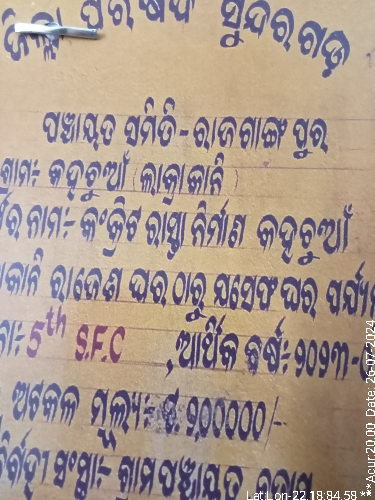 ଜିଲ୍ଲା ପରିଷଦ ସୁନ୍ଦରଗଡ଼
ପଞ୍ଚାୟତ ସମିତି - ରାଜଗାଙ୍ଗପୁର
ଗ୍ରାମ:- କଦୃଚୁଆଁ (ଲାକ୍ରାକାନି)
ର ନାମ:- କଂକ୍ରିଟ ରାସ୍ତା ନିର୍ମାଣ କଦୃଚୁଆଁ
କାନି ରାଜେଶ ଘର ଠାରୁ ଯସେଫ ଘର ପର୍ଯ୍ୟ
5th S.F.C, ଆର୍ଥିକ ବର୍ଷ:- ୨୦୨୩-
ଅଟକଳ ମୂଲ୍ୟ:- ଟ ୨୦୦୦୦୦/-
ସଂସ୍ଥା:- ଗ୍ରାମପଞ୍ଚାୟତ
Lat:Lon-22.18:84.58
***Acur:20.00, Date: 26-07-2024